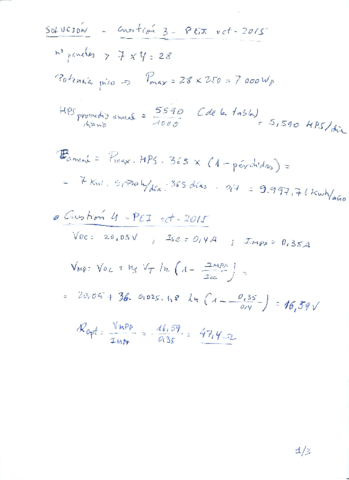 SOLUCIÓN - Cuestión 3 - PEI oct-2015
nº paneles > 7 x 4 = 28
Potencia pico => Pmax = 28 x 250 = 7000 Wp
HPS promedio anual = 5590 / 1000 (de la tabla) = 5,590 HPS/día
Eanual = Pmax · HPS · 365 x (1 - pérdidas) =
= 7 kW · 5,590 h/día · 365 días · 0'7 = 9.997,71 kWh/año
• Cuestión 4 - PEI oct-2015
VOC: 20,05V , ISC = 0,4A ; IMPP = 0,35A
VMP: VOC + ns VT ln (1 - IMPP / ISC) =
= 20,05 + 36 · 0,025 · 1,8 ln (1 - 0,35 / 0,4) = 16,59 V
Ropt = VMPP / IMPP = 16,59 / 0,35 = 47,4 Ω
1/3